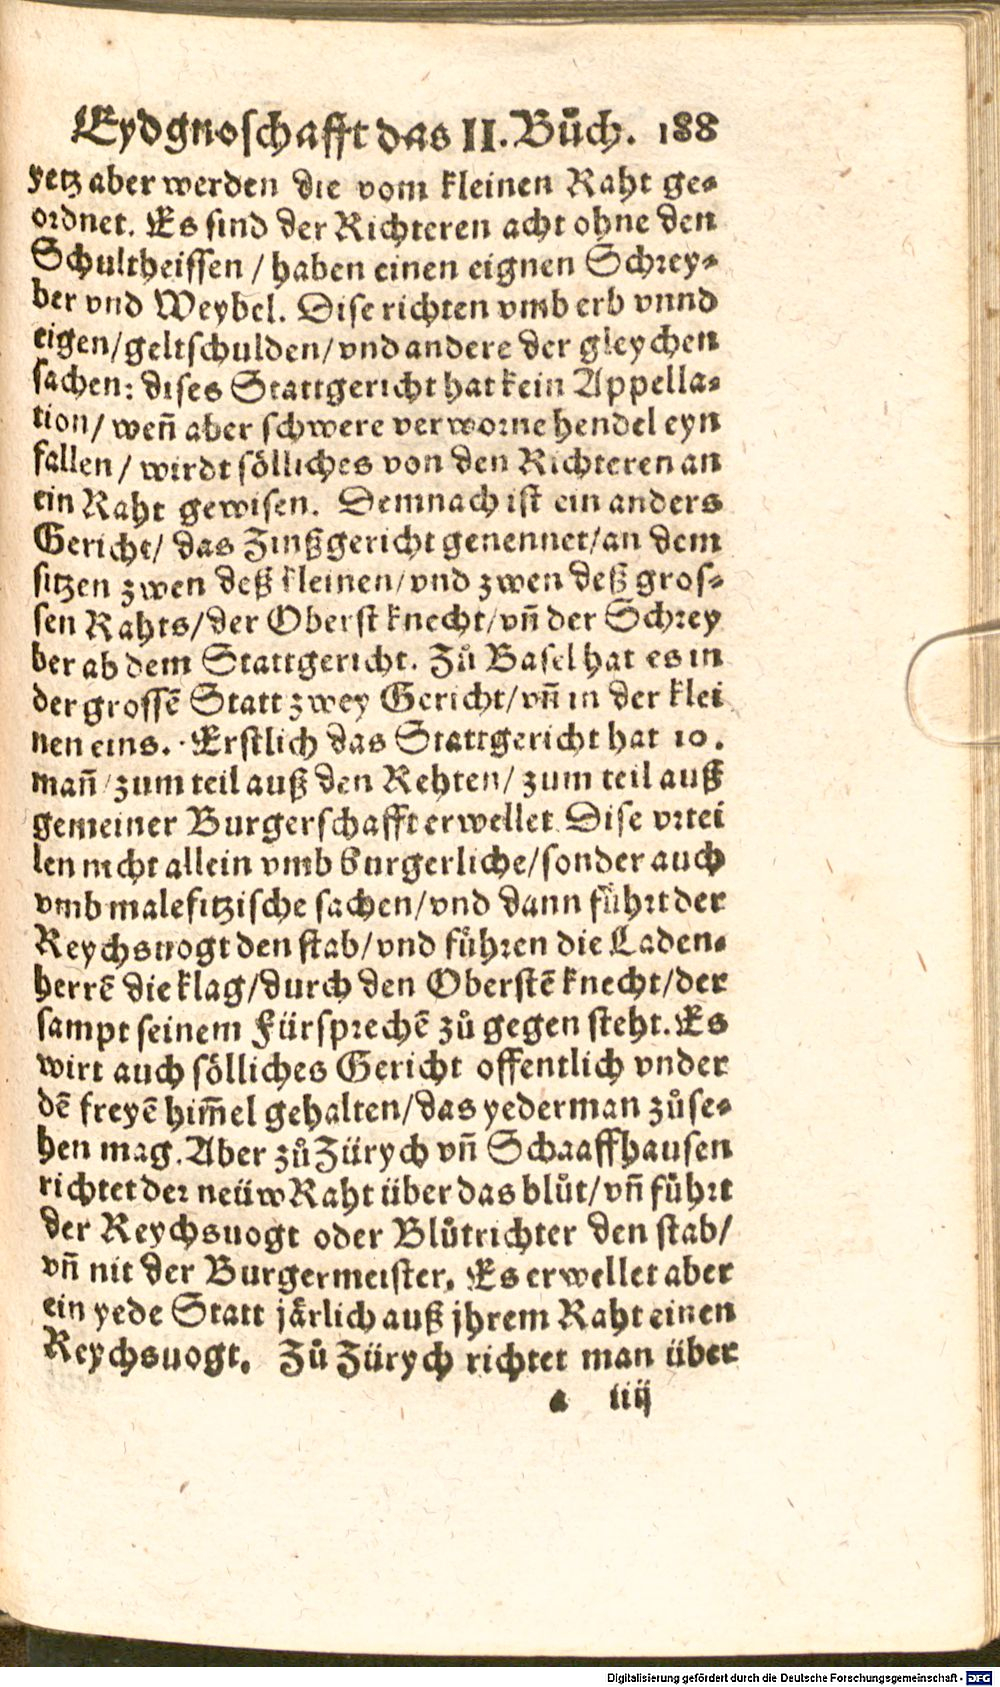 Eydgnoschafft das II. Bůch. 188
yetz aber werden die vom kleinen Raht ge-
ordnet. Es sind der Richteren acht ohne den
Schultheissen / haben einen eignen Schrey-
ber vnd Weybel. Dise richten vmb erb vnnd
eigen/geltschulden/vnd andere der gleychen
sachen: dises Stattgericht hat kein Appella-
tion/ weñ aber schwere verworne hendel eyn
fallen / wirdt sölliches von den Richteren an
ein Raht gewisen. Demnach ist ein anders
Gericht/ das Zinßgericht genennet/an dem
sitzen zwen deß kleinen/vnd zwen deß gros-
sen Rahts/der Oberst knecht/vñ der Schrey
ber ab dem Stattgericht. Zů Basel hat es in
der grossē Statt zwey Gericht/vñ in der klei
nen eins. Erstlich das Stattgericht hat 10.
mañ/zum teil auß den Rehten/ zum teil auß
gemeiner Burgerschafft erwellet. Dise vrtei
len nicht allein vmb burgerliche/sonder auch
vmb malefitzische sachen/vnd dann führt der
Reychsuogt den stab/vnd führen die Laden-
herrē die klag/durch den Oberstē knecht/der
sampt seinem Fürsprechē zů gegen steht. Es
wirt auch sölliches Gericht offentlich vnder
dē freyē him̄el gehalten/das yederman zůse-
hen mag. Aber zů Zürych vñ Schaaffhausen
richtet der neüw Raht über das blůt/vñ führt
der Reychsuogt oder Blůtrichter den stab/
vñ nit der Burgermeister. Es erwellet aber
ein yede Statt järlich auß jhrem Raht einen
Reychsuogt. Zů Zürych richtet man über
a iiij
Digitalisierung gefördert durch die Deutsche Forschungsgemeinschaft - DFG